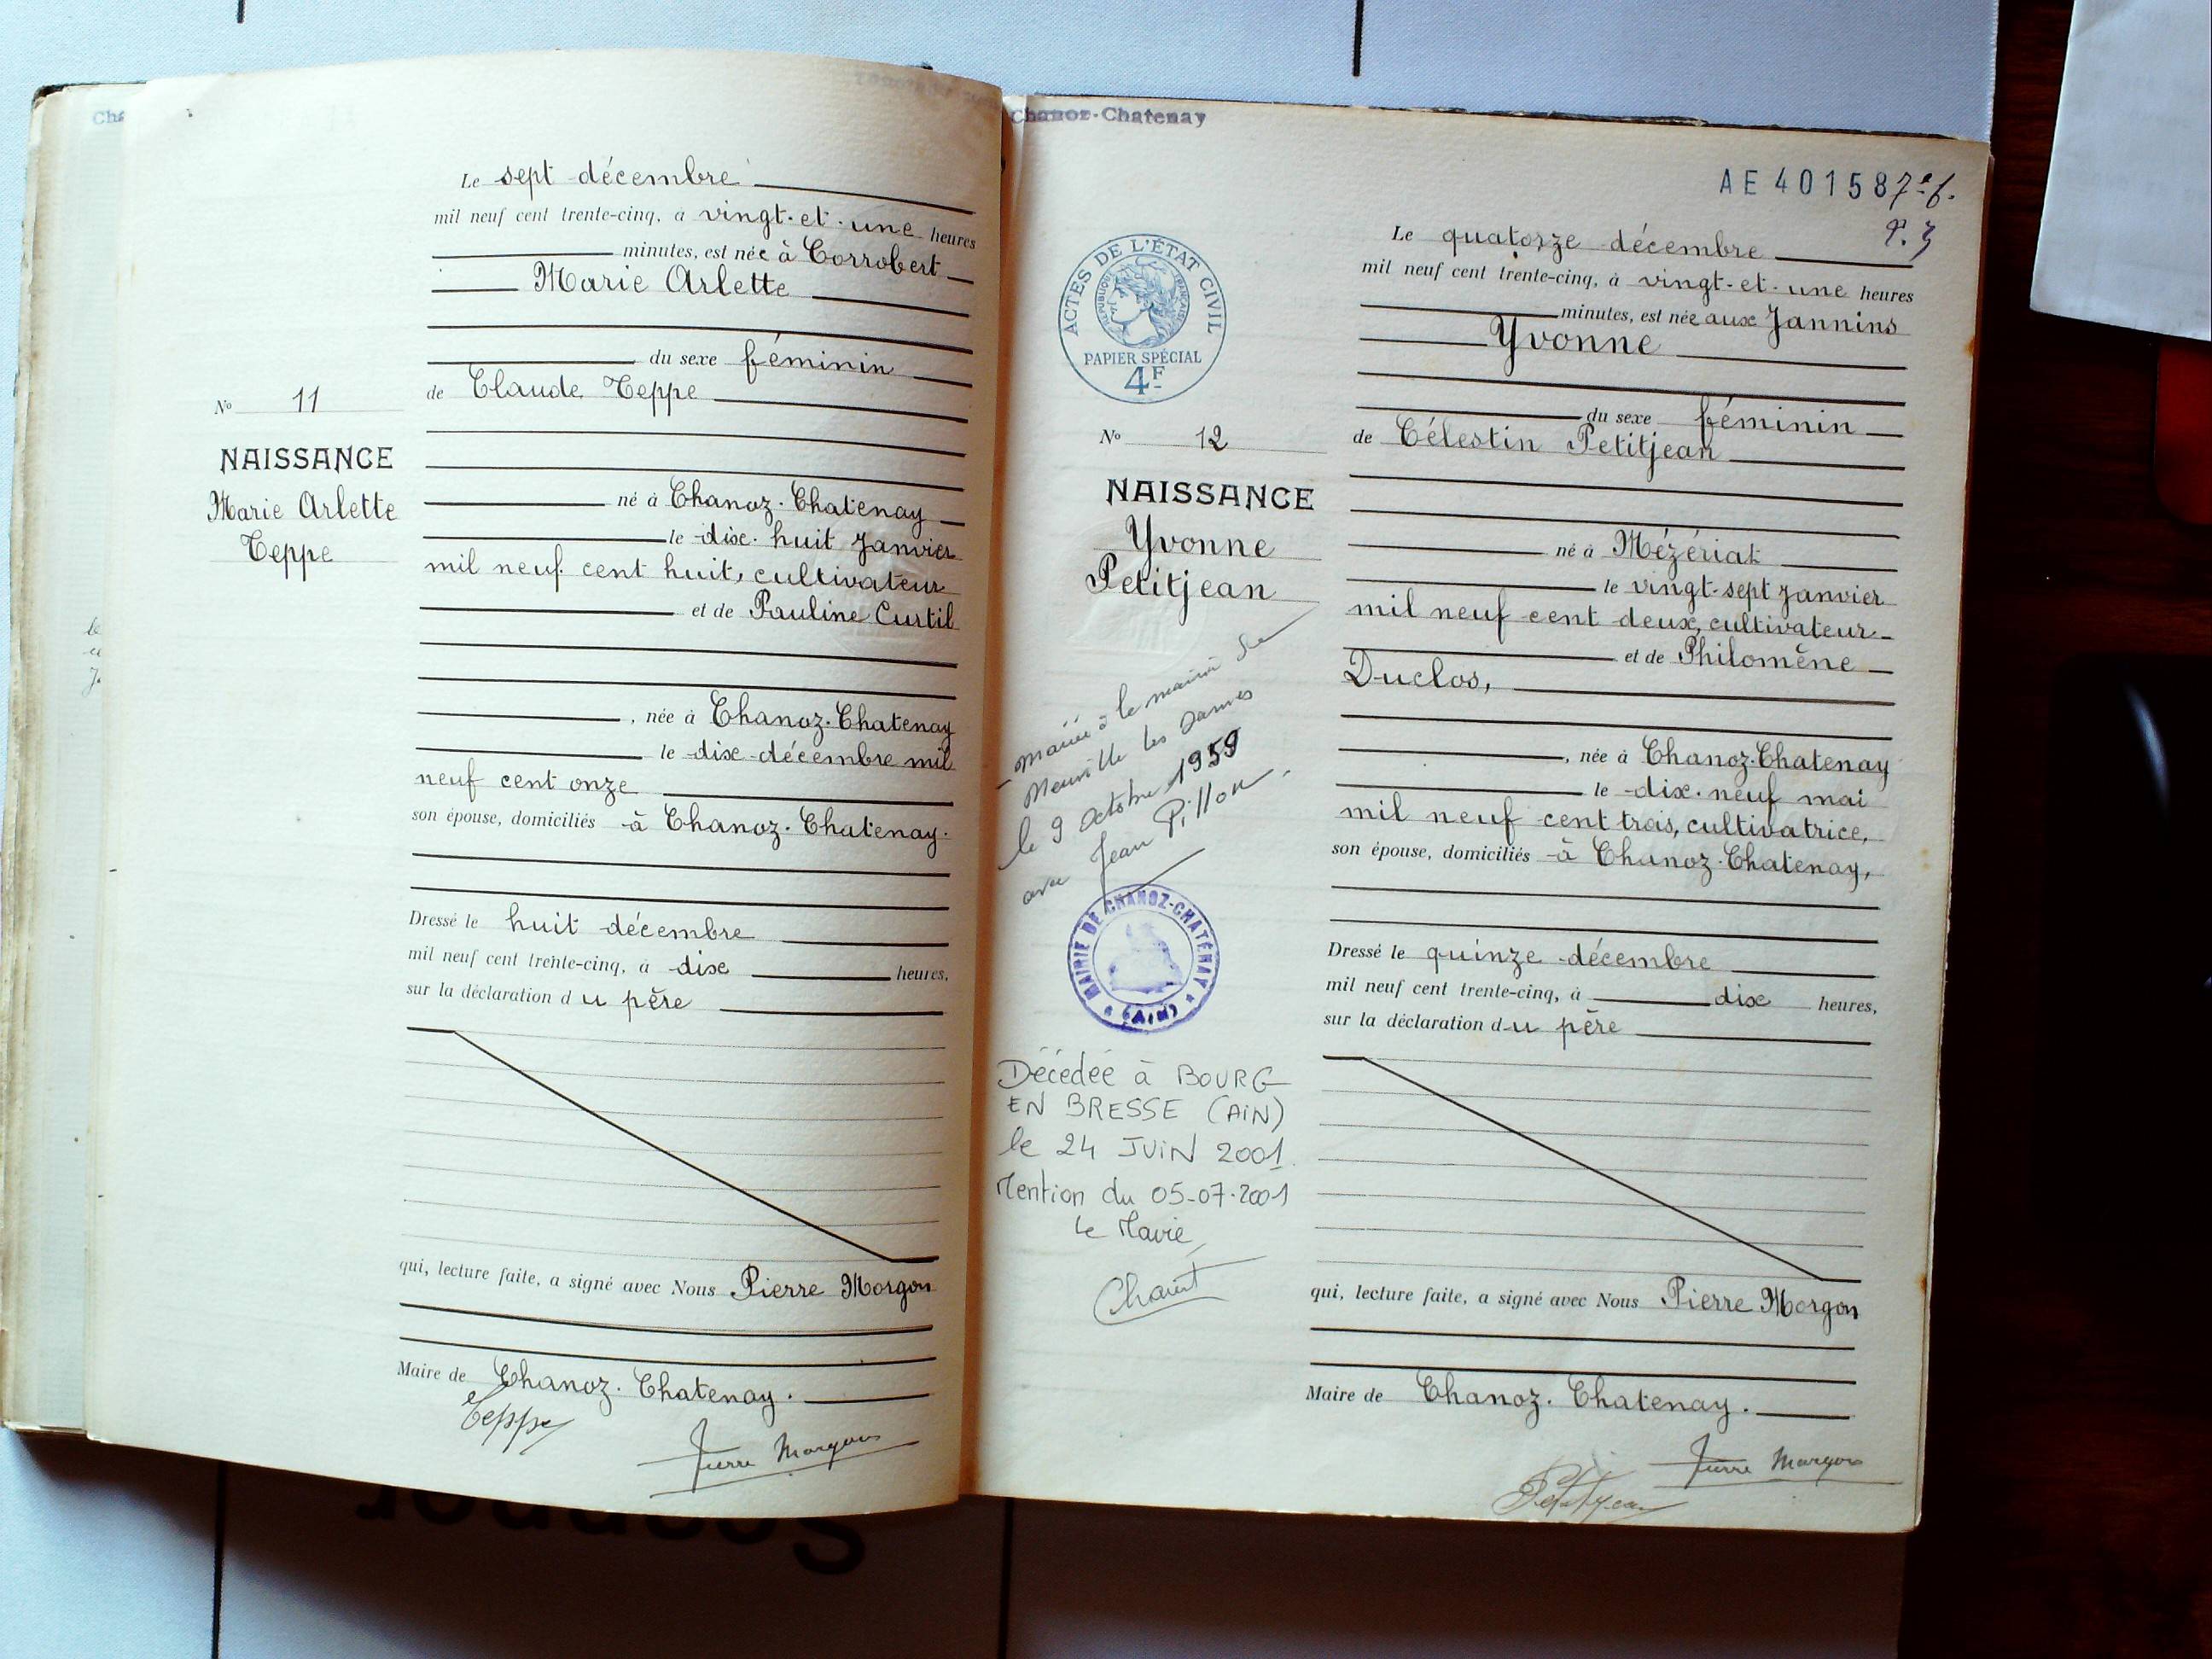 Le sept décembre
mil neuf cent trente-cinq, à vingt-et-une heures
minutes, est née à Corrobert
Marie Arlette
du sexe féminin
de Claude Teppe
No 11
NAISSANCE
Marie Arlette
Teppe
né à Chanoz-Chatenay
le dix-huit Janvier
mil neuf cent huit, cultivateur
et de Pauline Curtil
, née à Chanoz-Chatenay
le dix décembre mil
neuf cent onze
son épouse, domiciliés à Chanoz-Chatenay.
Dressé le huit décembre
mil neuf cent trente-cinq, à dix heures,
sur la déclaration du père
qui, lecture faite, a signé avec Nous Pierre Morgon
Maire de Chanoz-Chatenay.
Teppe
Pierre Morgon
Chanoz-Chatenay
AE 401587e f.
ACTES DE L'ÉTAT CIVIL
RÉPUBLIQUE FRANÇAISE
PAPIER SPÉCIAL
4F
Le quatorze décembre
mil neuf cent trente-cinq, à vingt-et-une heures
minutes, est née aux Jannins
Yvonne
du sexe féminin
de Célestin Petitjean
No 12
NAISSANCE
Yvonne
Petitjean
né à Mézériat
le vingt-sept janvier
mil neuf cent deux, cultivateur
et de Philomène
Duclos,
, née à Chanoz-Chatenay
le dix-neuf mai
mil neuf cent trois, cultivatrice,
son épouse, domiciliés à Chanoz-Chatenay,
Dressé le quinze décembre
mil neuf cent trente-cinq, à dix heures,
sur la déclaration du père
qui, lecture faite, a signé avec Nous Pierre Morgon
Maire de Chanoz-Chatenay.
Pierre Morgon
Petitjean
mariée à la mairie de
Neuville les Dames
le 9 Octobre 1959
avec Jean Pillon
MAIRIE DE CHANOZ-CHATÉNAY
(AIN)
Décédée à BOURG
EN BRESSE (AIN)
le 24 JUIN 2001.
Mention du 05-07-2001
Le Maire